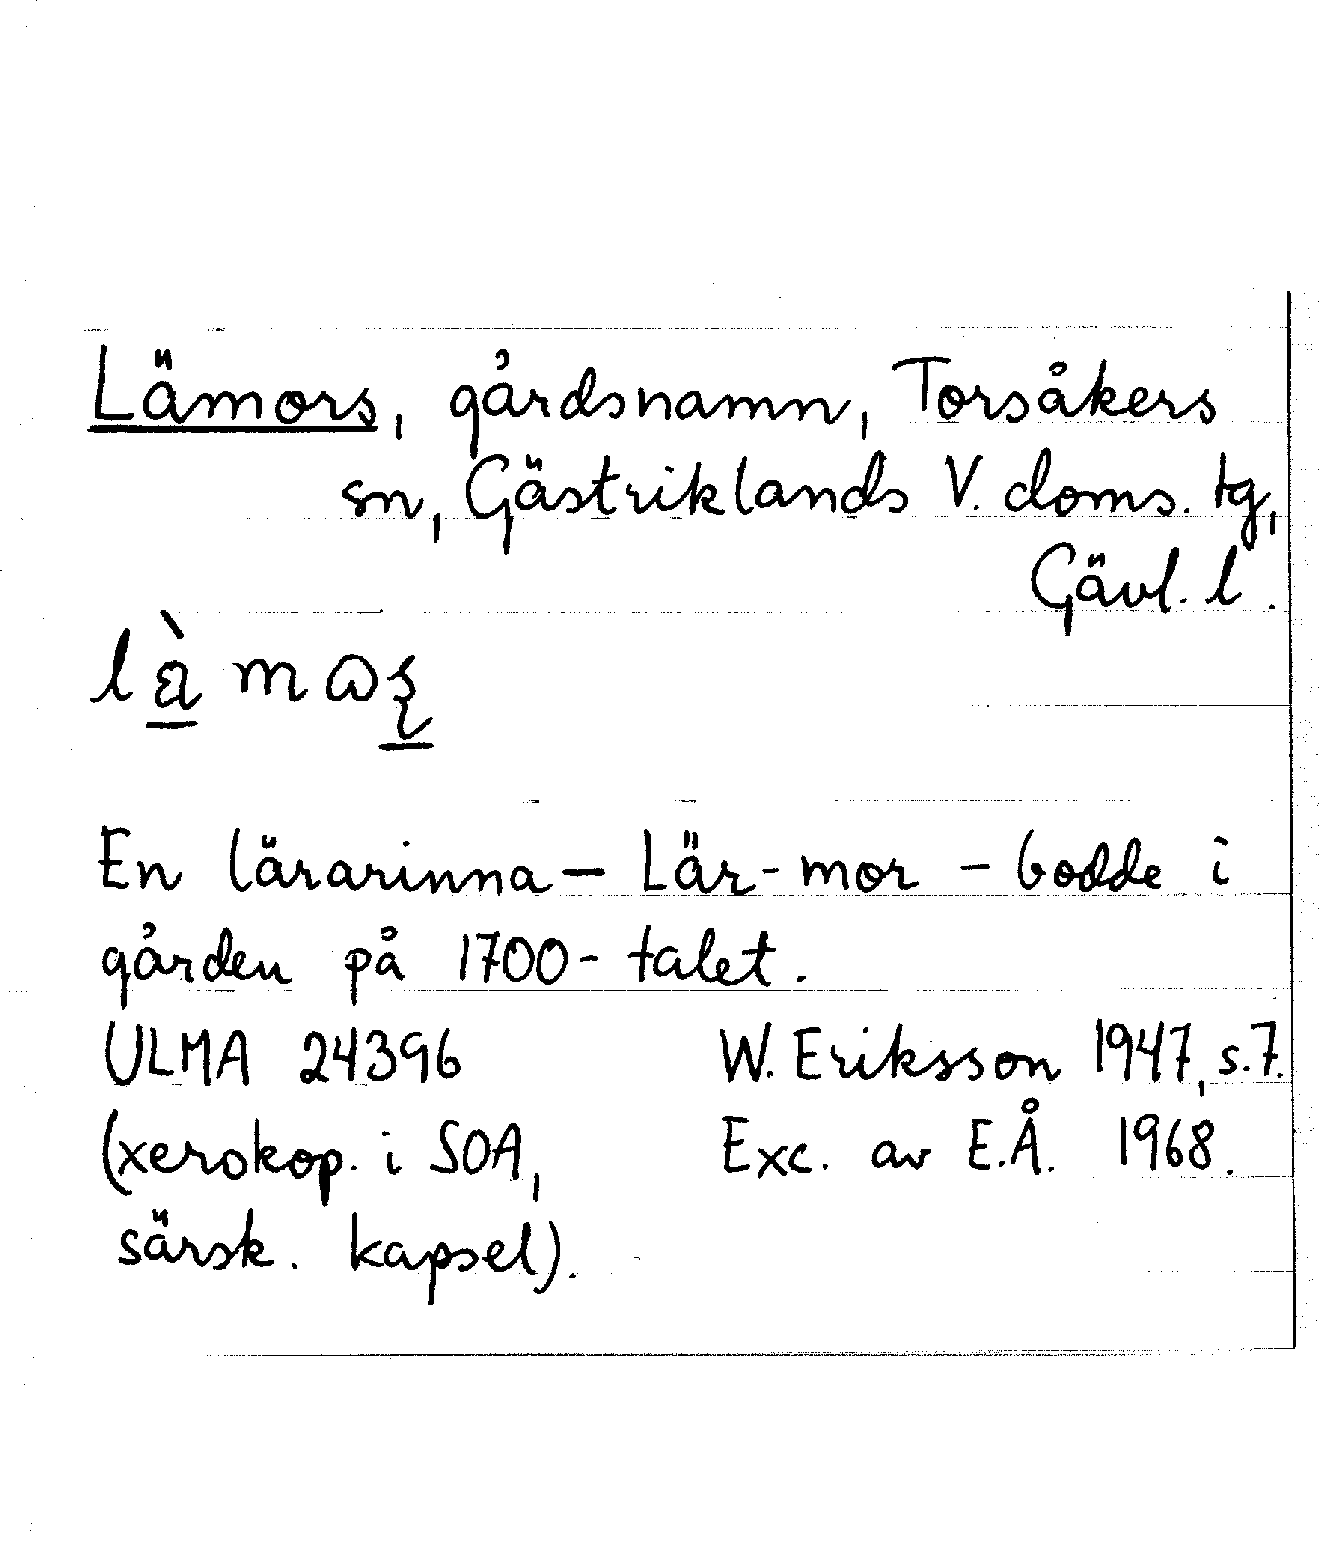 Lämors, gårdsnamn, Torsåkers
sn, Gästriklands V. doms. tg,
Gävl. l.
En lärarinna – Lär-mor – bodde i
gården på 1700-talet.
ULMA 24396 W. Eriksson 1947, s. 7.
(xerokop. i SOA, Exc. av E.Å. 1968.
särsk. kapsel).